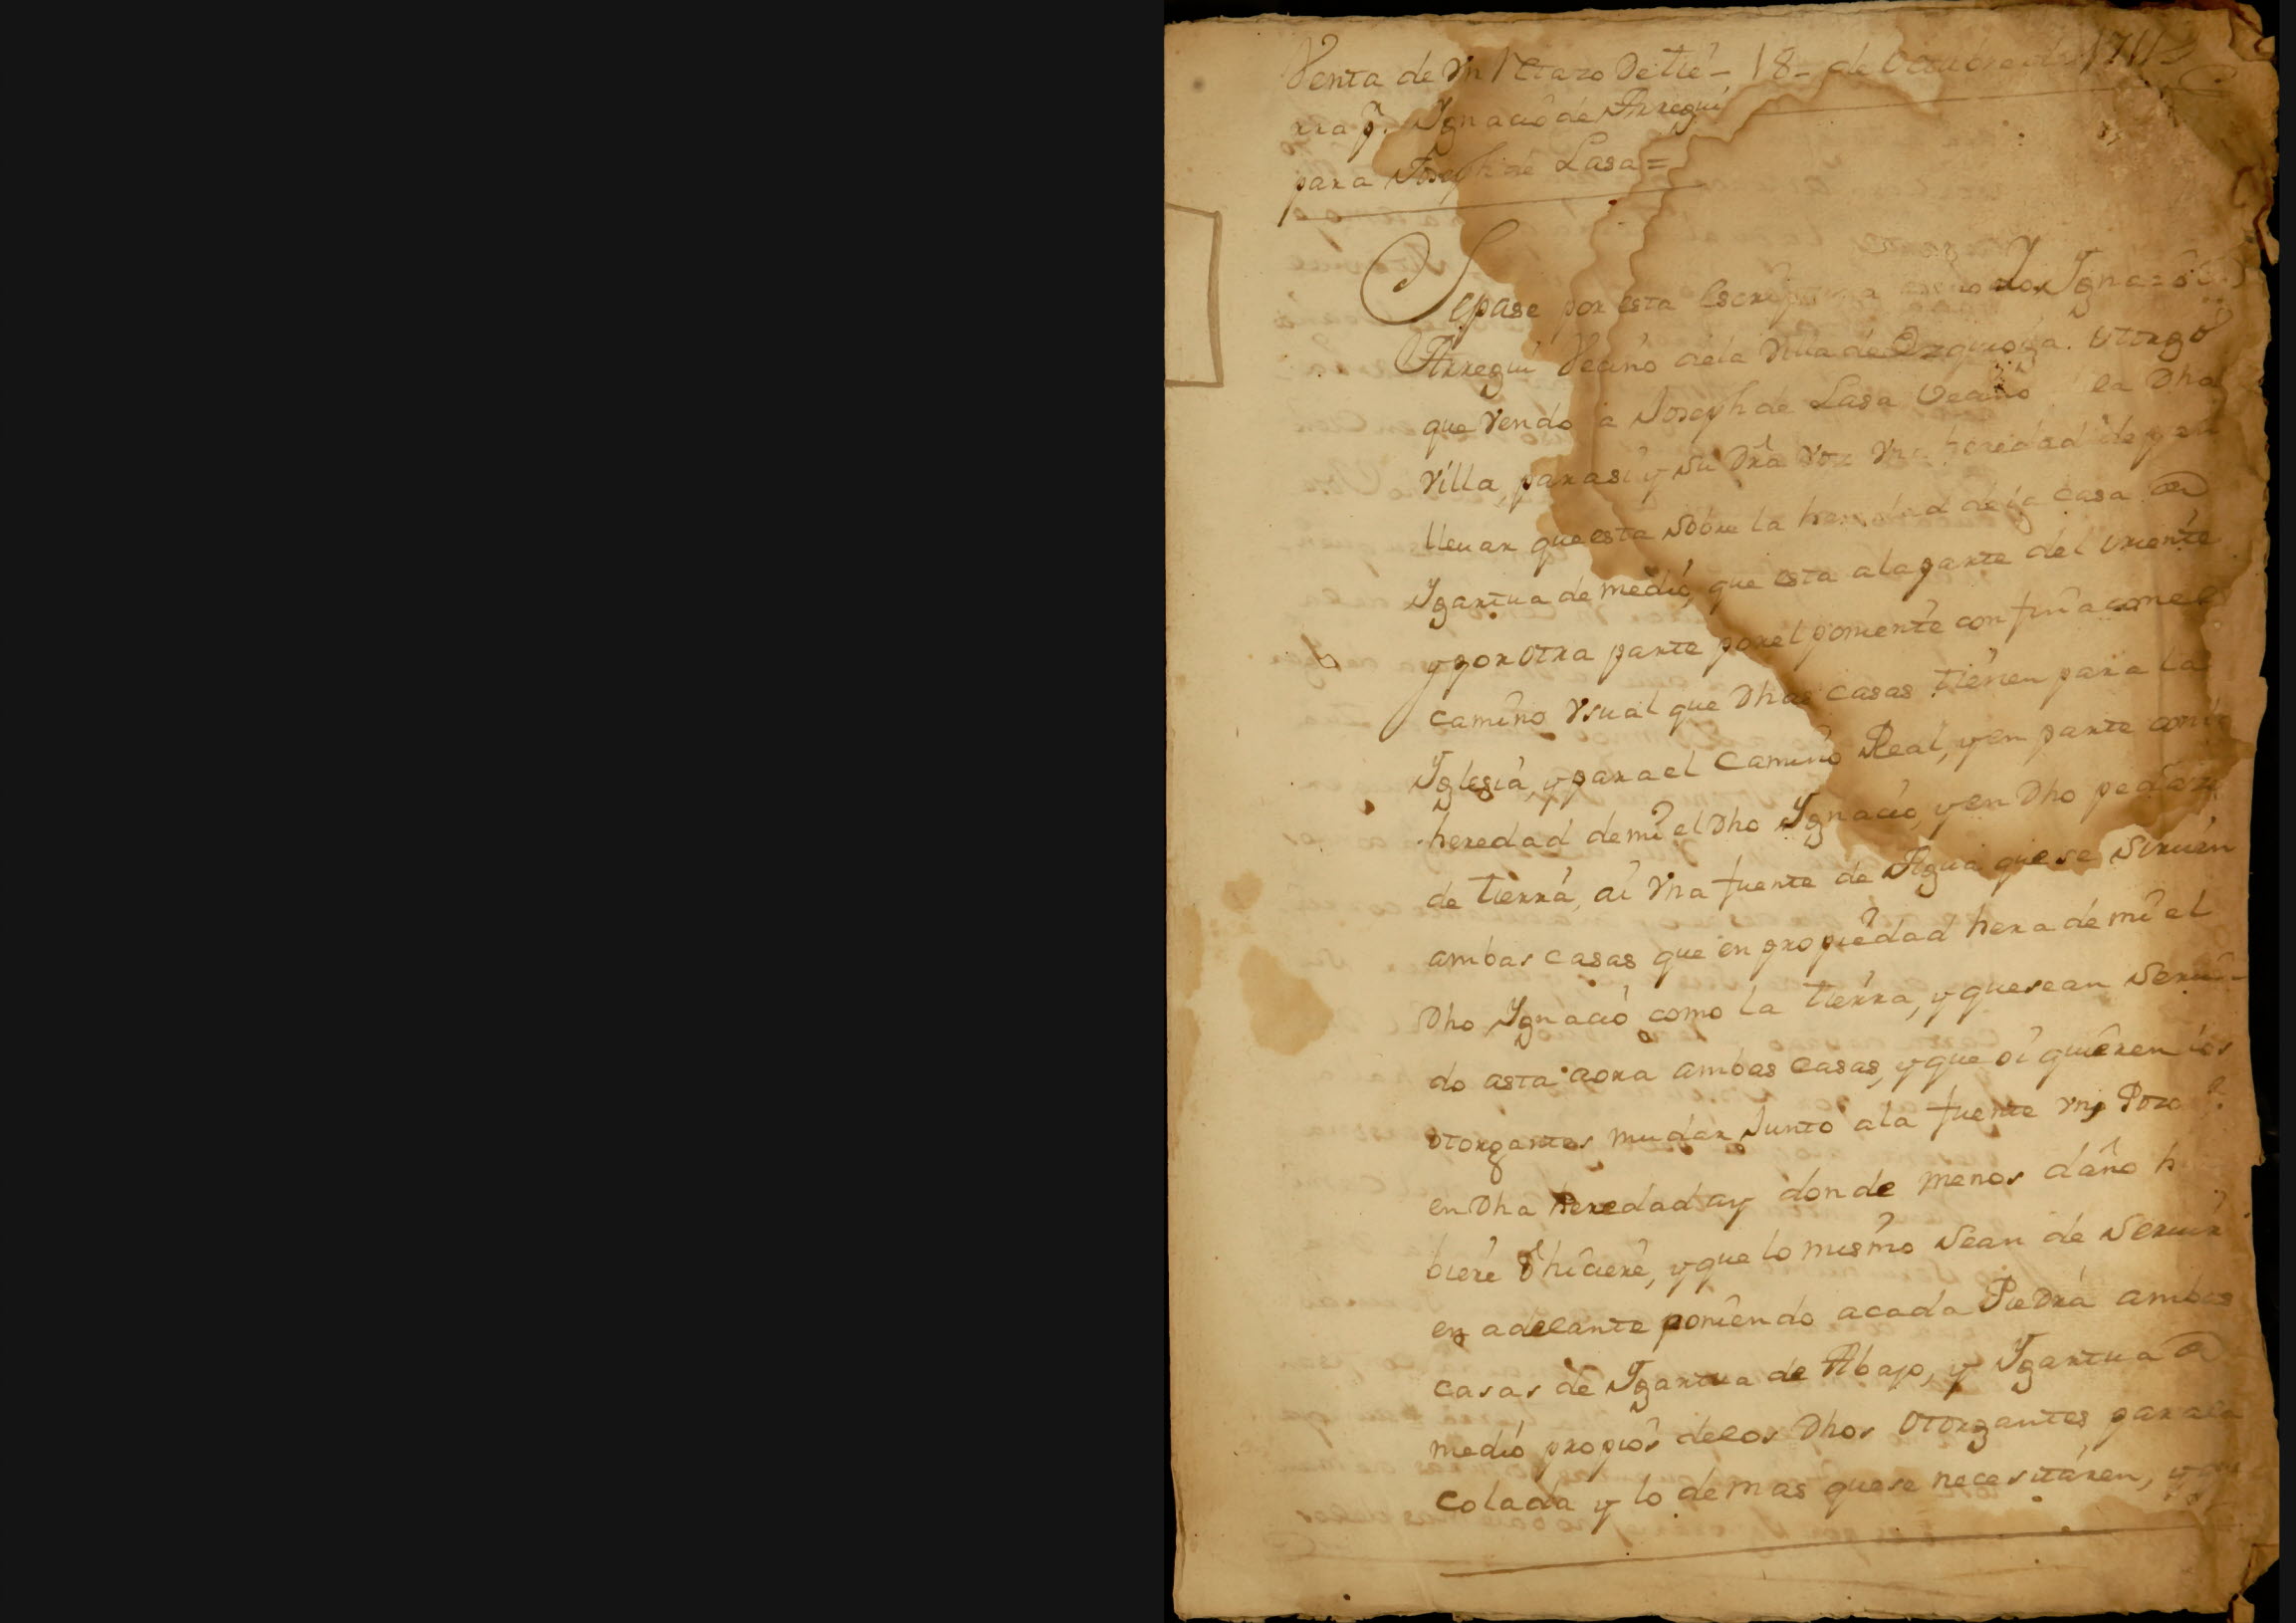 Venta de Vn Petazo De tie- 18- de Octubre de 1711
rra p. Ygnacio de Arregui
para Joseph de Lasa =
Sepase por esta escriptura como Yo Ygnacio de
Arregui Vecino dela Villa de Ezquioga. Otorgo
que Vendo a Joseph de Lasa Vecino la Dha
Villa, para si y su Dra voz Vna heredad de pan
lleuar que esta sobre la heredad de la casa de
Ygartua de medio, que esta ala parte del oriente
y por otra parte por el poniente confina con el
camino Vsual que Dhas casas tienen para la
Yglesia, y para el Camino Real, y en parte con la
heredad de mi el Dho Ygnacio, y en Dho pedazo
de tierra, ai Vna fuente de Agua que se siruen
ambas casas que en propiedad hera de mi el
Dho Ygnacio como la tierra, y que sean serui-
do asta aora ambas casas, y que oi quieren los
otorgantes mudar Junto ala fuente Vn Pozo q.
en Dha heredad ay donde menos daño h
biere o hiciere, y que lo mismo sean de seruir
en adelante poniendo a cada Piedra ambas
casas de Ygartua de Abajo, y Ygartua de
medio propios delos Dhos Otorgantes para la
colada y lo demas que se necesitaren, y que